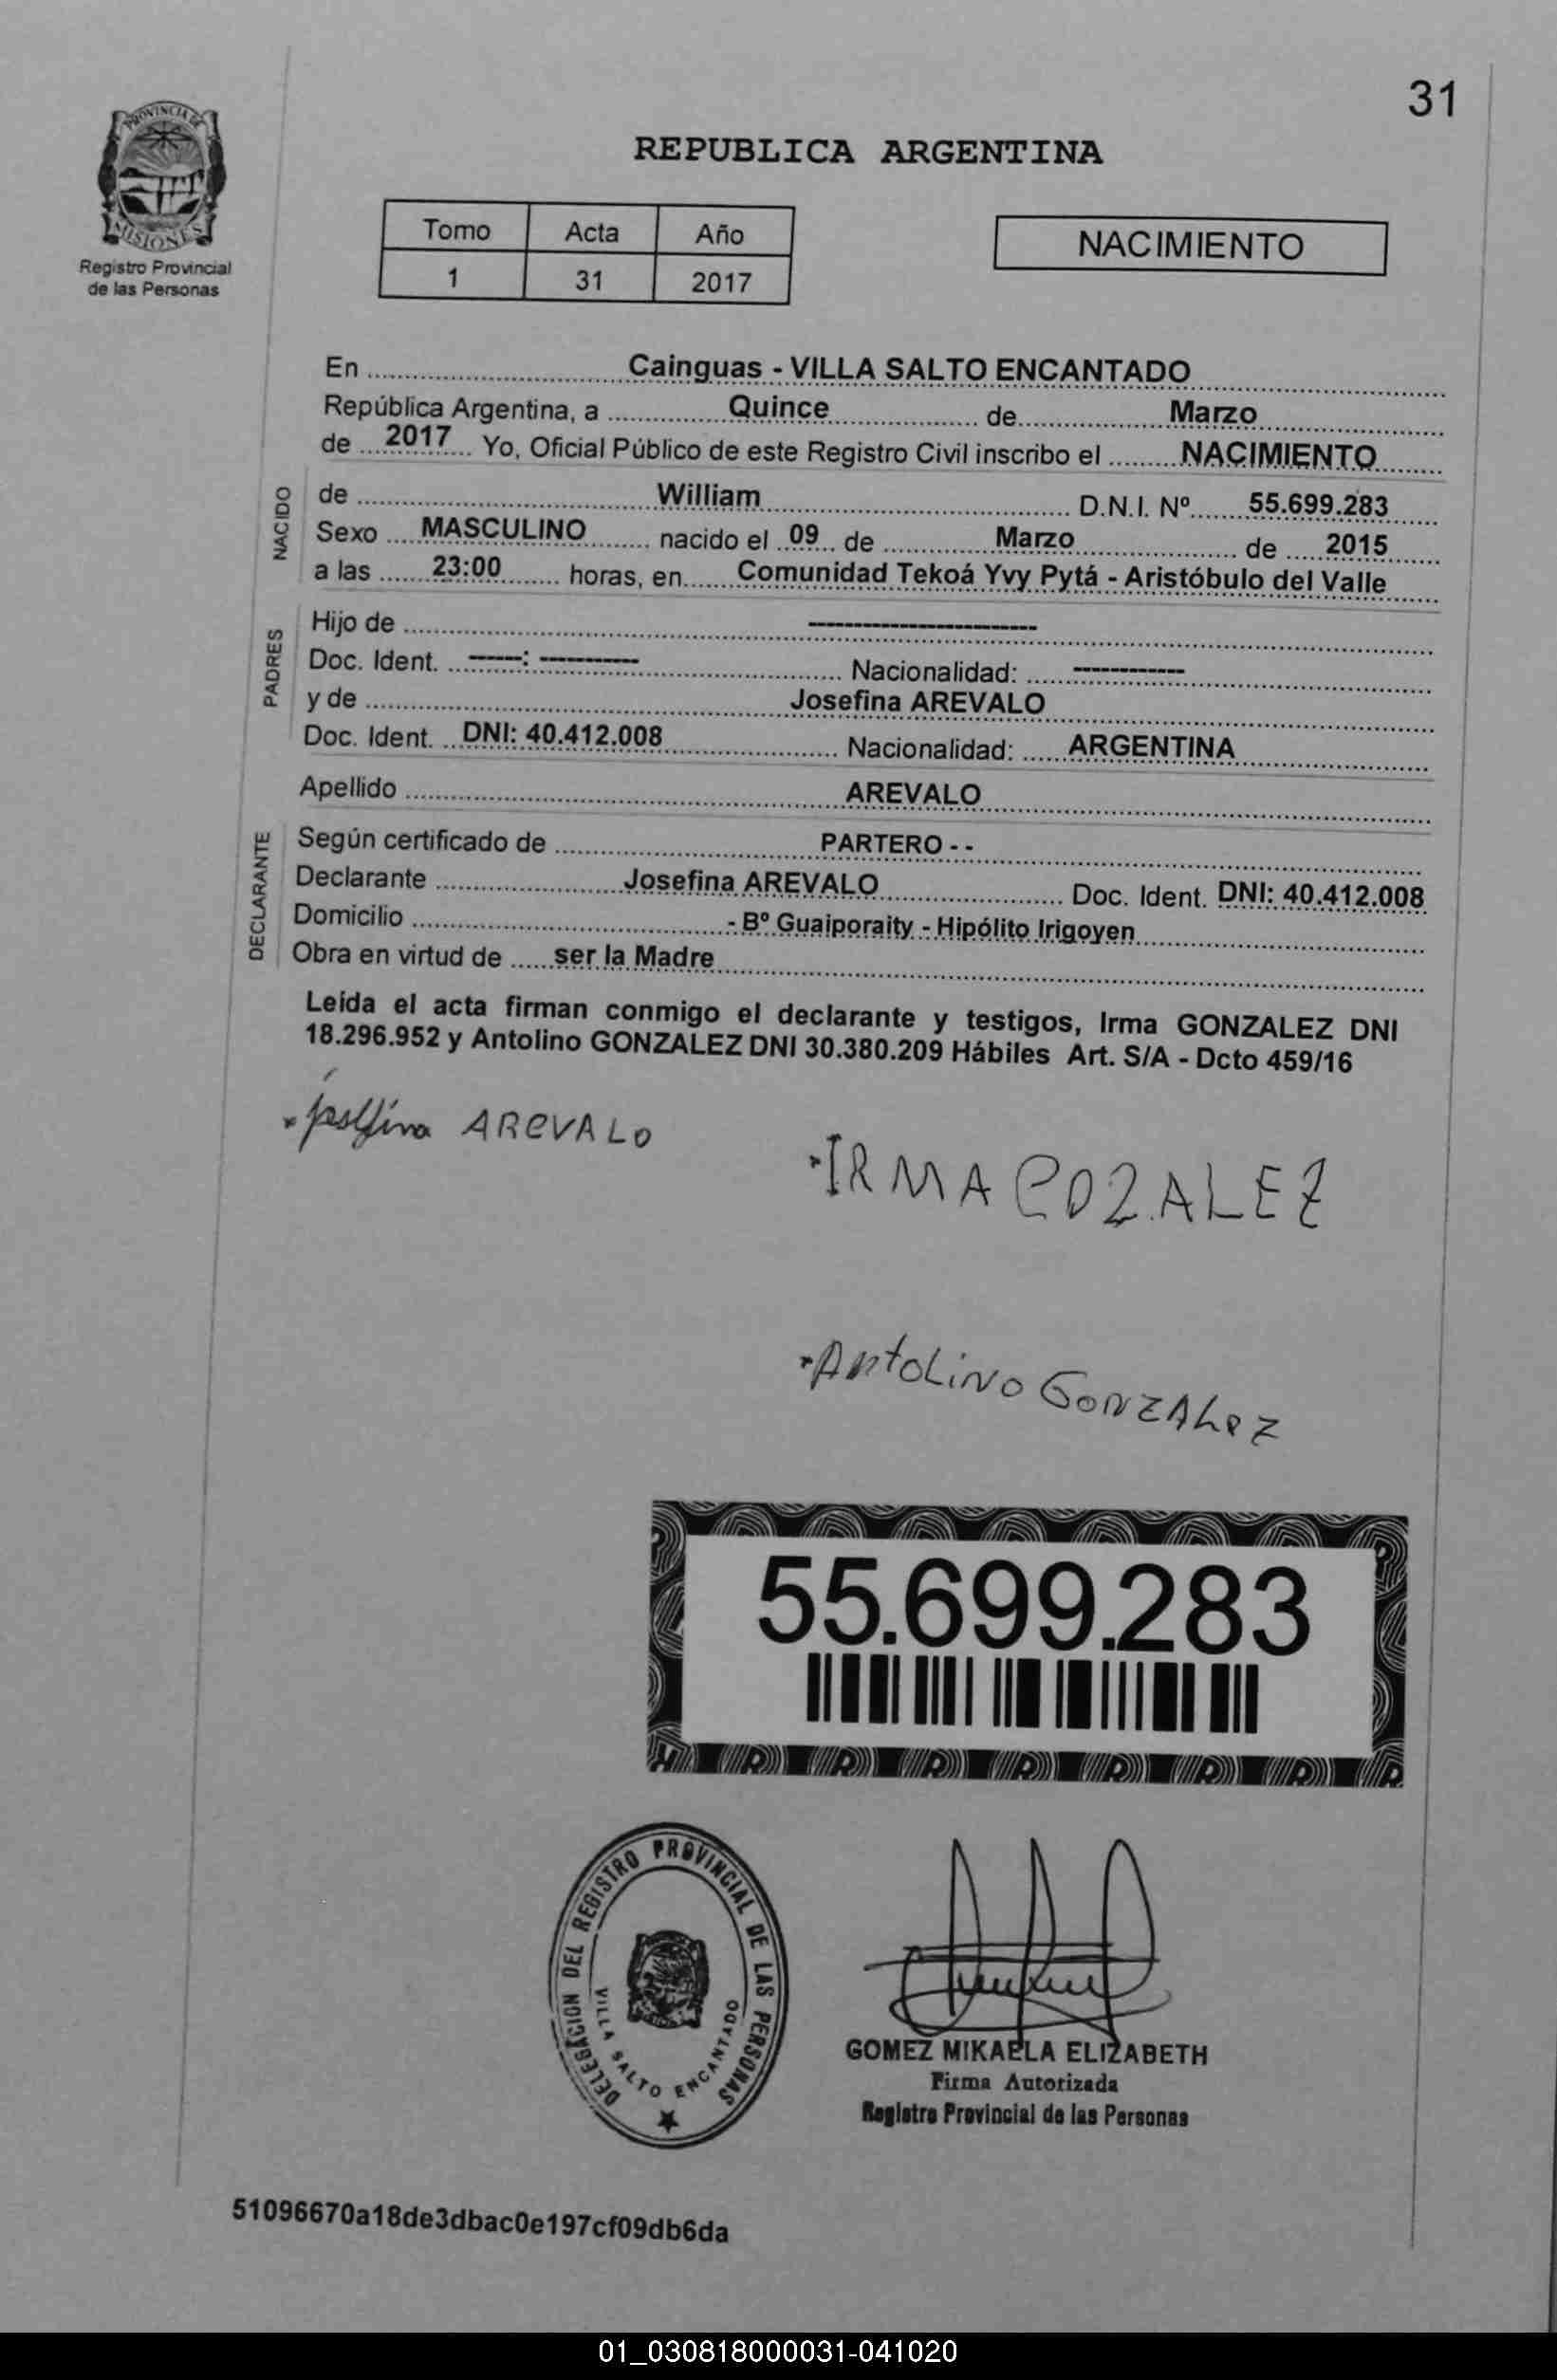 31
PROVINCIA DE
MISIONES
Registro Provincial
de las Personas
REPUBLICA ARGENTINA
Tomo Acta Año
1 31 2017
NACIMIENTO
En Cainguas - VILLA SALTO ENCANTADO
República Argentina, a Quince de Marzo
de 2017 Yo, Oficial Público de este Registro Civil inscribo el NACIMIENTO
NACIDO
de William D.N.I. Nº 55.699.283
Sexo MASCULINO nacido el 09 de Marzo de 2015
a las 23:00 horas, en Comunidad Tekoá Yvy Pytá - Aristóbulo del Valle
PADRES
Hijo de ------------------------
Doc. Ident. ------: ----------- Nacionalidad: ------------
y de Josefina AREVALO
Doc. Ident. DNI: 40.412.008 Nacionalidad: ARGENTINA
Apellido AREVALO
DECLARANTE
Según certificado de PARTERO - -
Declarante Josefina AREVALO Doc. Ident. DNI: 40.412.008
Domicilio - Bº Guaiporaity - Hipólito Irigoyen
Obra en virtud de ser la Madre
Leída el acta firman conmigo el declarante y testigos, Irma GONZALEZ DNI
18.296.952 y Antolino GONZALEZ DNI 30.380.209 Hábiles Art. S/A - Dcto 459/16
Josefina AREVALO
IRMA GOZALEZ
Antolino Gonzalez
55.699.283
DELEGACION DEL REGISTRO PROVINCIAL DE LAS PERSONAS
VILLA SALTO ENCANTADO
GOMEZ MIKAELA ELIZABETH
Firma Autorizada
Registro Provincial de las Personas
51096670a18de3dbac0e197cf09db6da
01_030818000031-041020